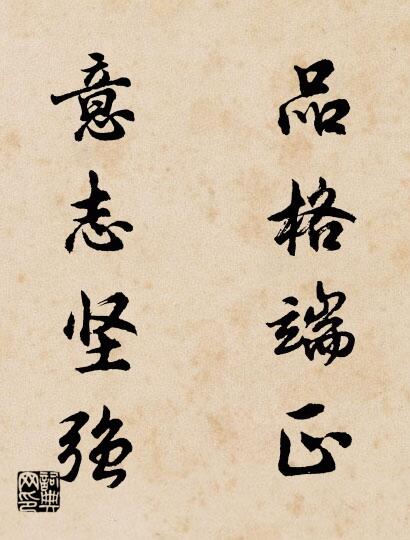 品格端正
意志坚强
詞典
网印